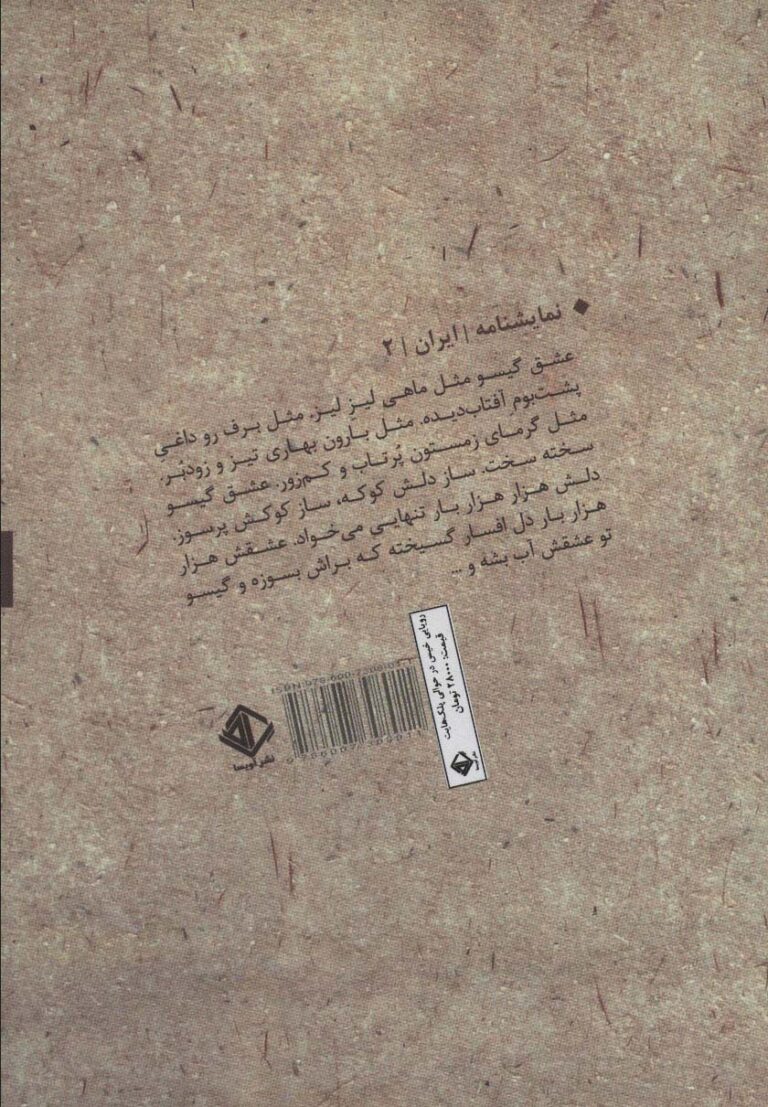 ◆ نمایشنامه | ایران | ۲
عشق گیسو مثل ماهی لیز لیز. مثل برف رو داغیِ
پشت‌بوم آفتاب‌دیده. مثل بارون بهاری تیز و زودبُر.
مثل گرمای زمستون پُرتاب و کم‌زور. عشق گیسو
سخته سخت. ساز دلش کوکه، ساز کوکش پرسوز.
دلش هزار هزار بار تنهایی می‌خواد. عشقش هزار
هزار بار دل افسار گسیخته که براش بسوزه و گیسو
تو عشقش آب بشه و ...
رویایی خیس در حوالی پلک‌هایت
قیمت: ۲۸۰۰۰ تومان
نشر آویسا